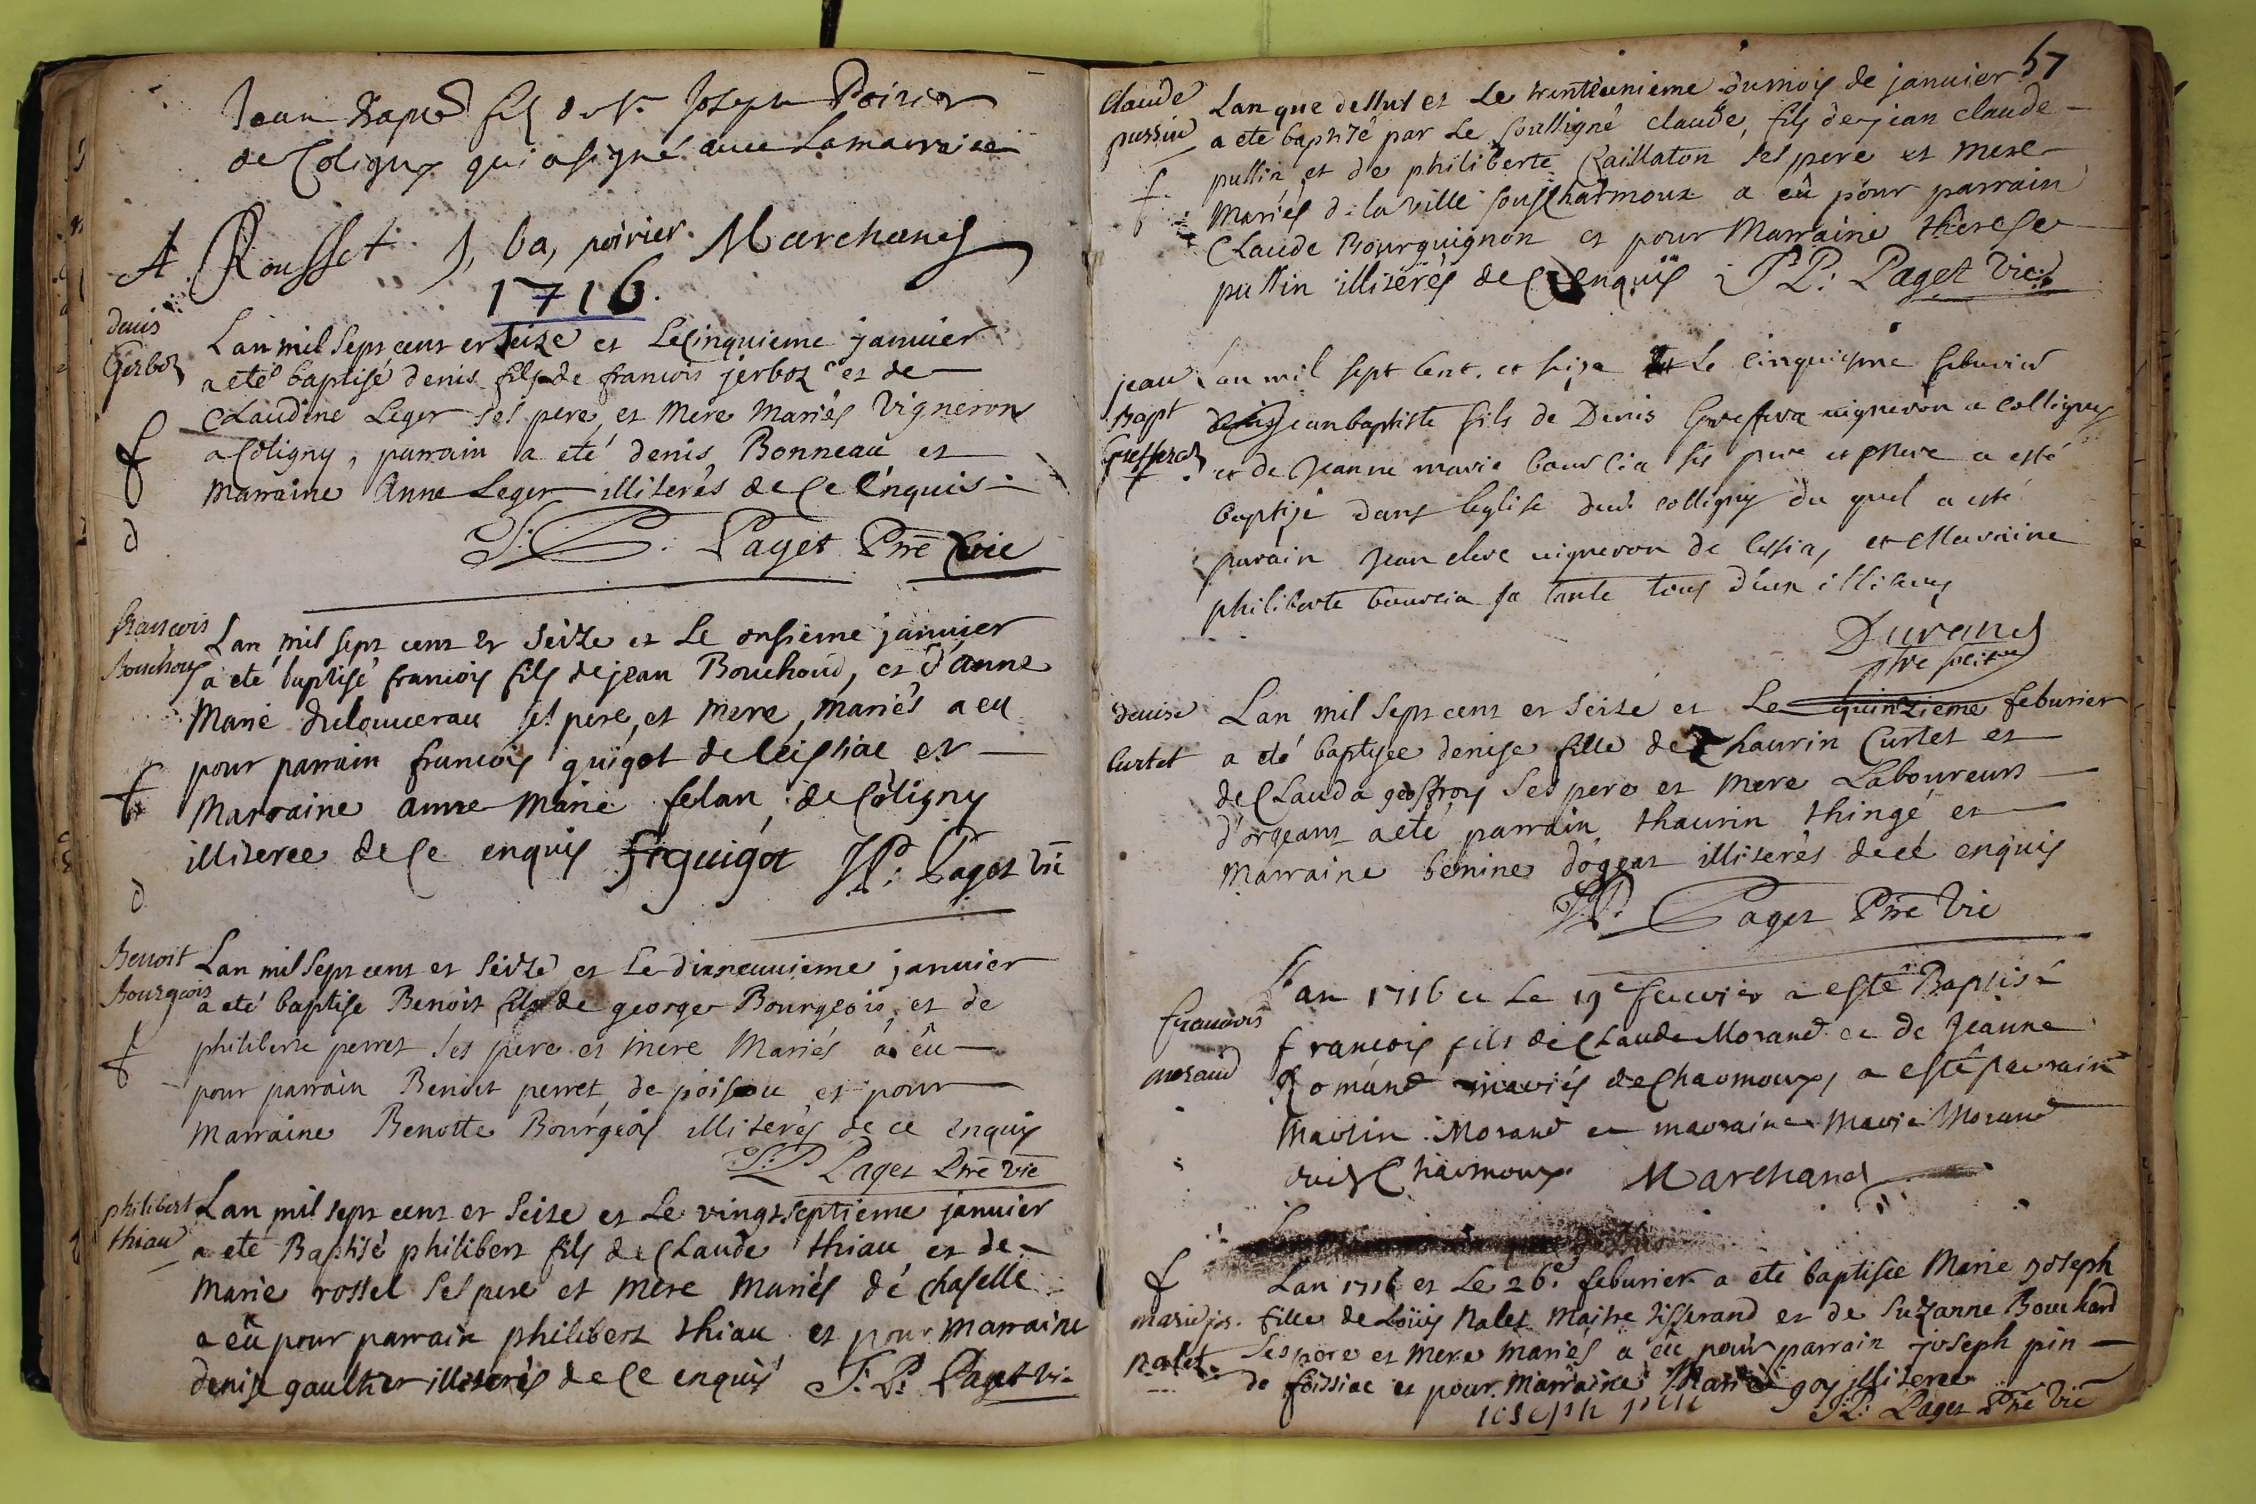 Jean Bapt fils de Sr Joseph Poirier
de Coligny qui a signé avec La marraine
A Rousset J, ba, poirier. Marchand
1716.
denis
Gerboz
Lan mil sept cent et seize et Le cinquieme janvier
a eté baptisé denis fils de francois jerboz et de
Claudine Leger ses pere, et mere mariés vignerons
a Côligny, parrain a eté denis Bonneau et
marraine Anne Leger illiterés de Ce Enquis
J. P. Paget Pre Vic
francois
Bouchoud
Lan mil sept cent et seize et Le onsieme janvier
a eté baptisé francois fils de jean Bouchoud, et d'anne
Marie ses pere, et mere, mariés a eu
pour parrain francois guigot de et
Marraine anne marie felan, de Côligny
illiteree de Ce enquis fr guigot J.P. Paget Vic
d
Benoit
Bourgeois
Lan mil sept cent et seize et Le dixneuvieme janvier
a eté baptise Benoit fils de george Bourgeois, et de
philiberte perret ses pere et mere Mariés a eû
pour parrain Benoit perret, de poisou et pour
Marraine Benotte Bourgeois illiterés de ce enquis
J.P. Paget Pre Vic
philibert
thiau
Lan mil sept cent et seize et Le vingtseptieme janvier
a eté Baptisé philibert fils de Claude thiau et de
Marie rossel ses pere et mere Mariés de Chaselle
a eû pour parrain philibert thiau et pour marraine
denise gaulther illiterés de Ce enquis J. P. Paget Vic
57
Claude
pussin
Lan que dessus et Le trenteunieme du mois de janvier
a ete baptisé par Le soussigné claude, fils de jean claude
pussin et de philiberte Caillaton ses pere et mere
Mariés de la ville sous Charmoux a eû pour parrain
Claude Bourguignon et pour Marraine therese
pussin illiterés de Ce enquis J.P. Paget Vic.
jean
Bapt
Gresseroz
Lan mil sept Cent. et seize et Le cinquieme febvrier
Jean baptiste fils de Denis vigneron a colligny
et de Jeanne marie bauscia ses pere et mere a esté
baptisé dans leglise dud. colligny du quel a esté
parain Jean vigneron de Cessia, et Maraine
philiberte bauscia sa tante tous deux illiterés
Durand
ptre
denise
Curtet
Lan mil sept cent et seize et Le quinzieme feburier
a eté baptisée denise fille de thaurin Curtet et
de Clauda geoffroy ses pere et mere Laboureurs
d'orgeant a eté parrain thaurin thingé et
marraine benine dogeat illiterés de cé enquis
J.P. Paget Pre Vic
francois
morand
Lan 1716 et Le 19e fevrier a esté Baptisé
francois fils de Claude Morand et de Jeanne
Romand mariés de Charmoux, a esté parrain
Maurin Morand et marraine Marie Morand
dud Charmoux Marchand
marie jos.
nalet
Lan 1716 et Le 26e feburier a eté baptisée Marie Joseph
fille de Loüis Nalet Maitre tisserand et de Suzanne Bouchard
ses pere et mere mariés a eû pour parrain joseph pin
de foissiac et pour Marraine Marie goy illiteree
joseph pin J.P. Paget Pre Vic